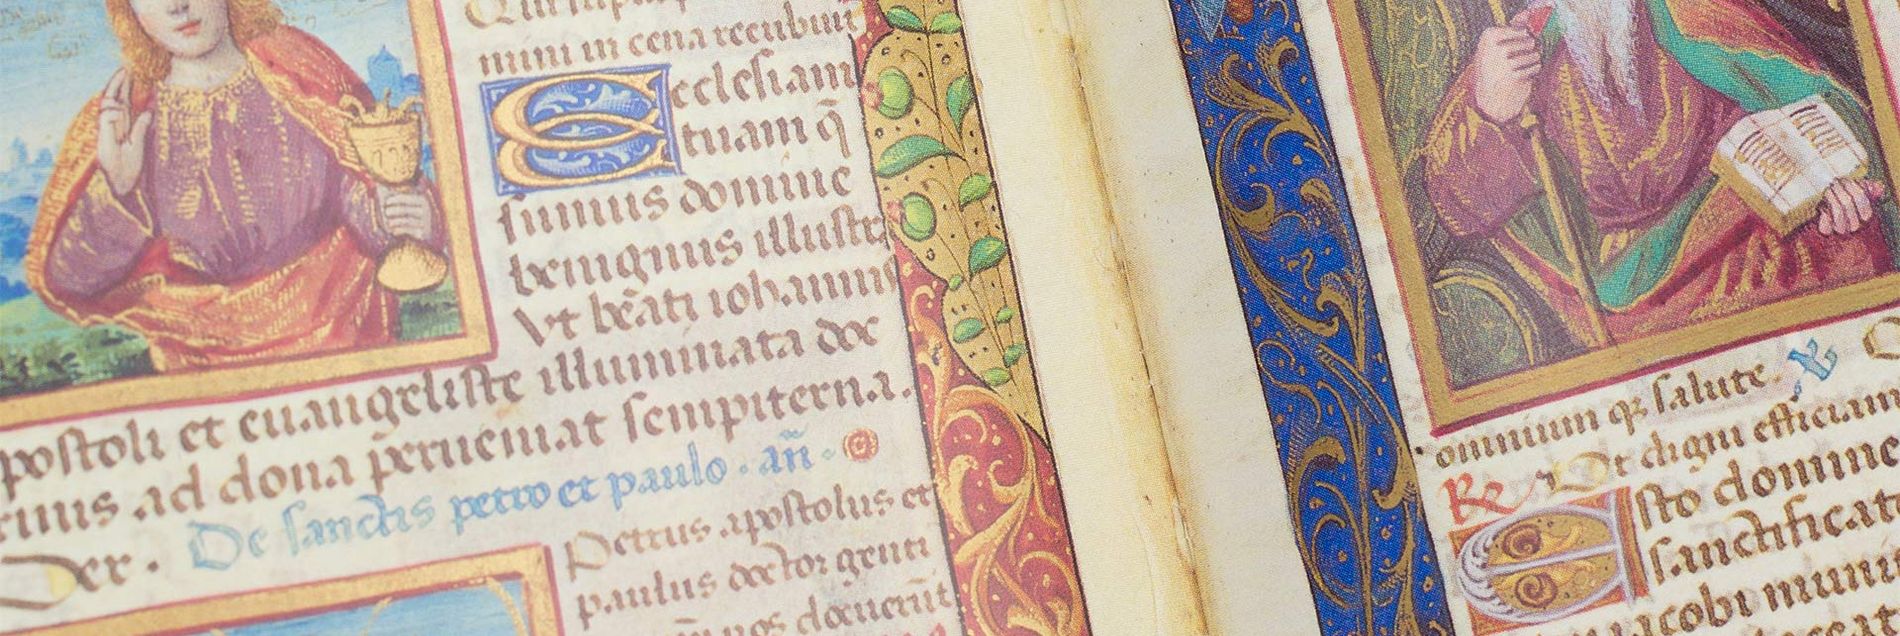 mini in cena recubuit
Ecclesiam
tuam q̃
sumus domine
benignus illustra
Vt beati iohannis
apostoli et euangeliste illuminata doc
trinis ad dona perueniat sempiterna.
Per. De sanctis petro et paulo. añ.
Petrus apostolus et
paulus doctor genti
nos docuerũt
omnium qꝫ salute.
℟ Ut digni efficiam
Esto domine
sanctificat
iacobi muni